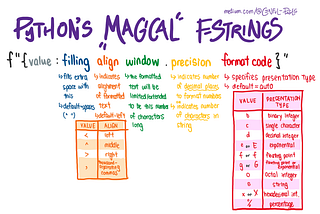 medium.com/@GYANVI-PATHS
PYTHON'S "MAGICAL" F-STRINGS
f"{value : filling align window . precision format code}"
↳ fills extra space with this
↳ default=spaces (" ")
↳ indicates alignment of formatted text
↳ default=left
↳ the formatted text will be limited/extended to be this number of characters long
↳ indicates number of decimal places to format numbers
↳ indicates number of characters in string
↳ specifies presentation type
↳ default = auto
VALUE ALIGN
< left
^ middle
> right
VALUE PRESENTATION TYPE
b binary integer
c single character
d decimal integer
e or E exponential
f or F floating point
g or G floating point
o octal integer
s string
x or X hexadecimal int
% percentage